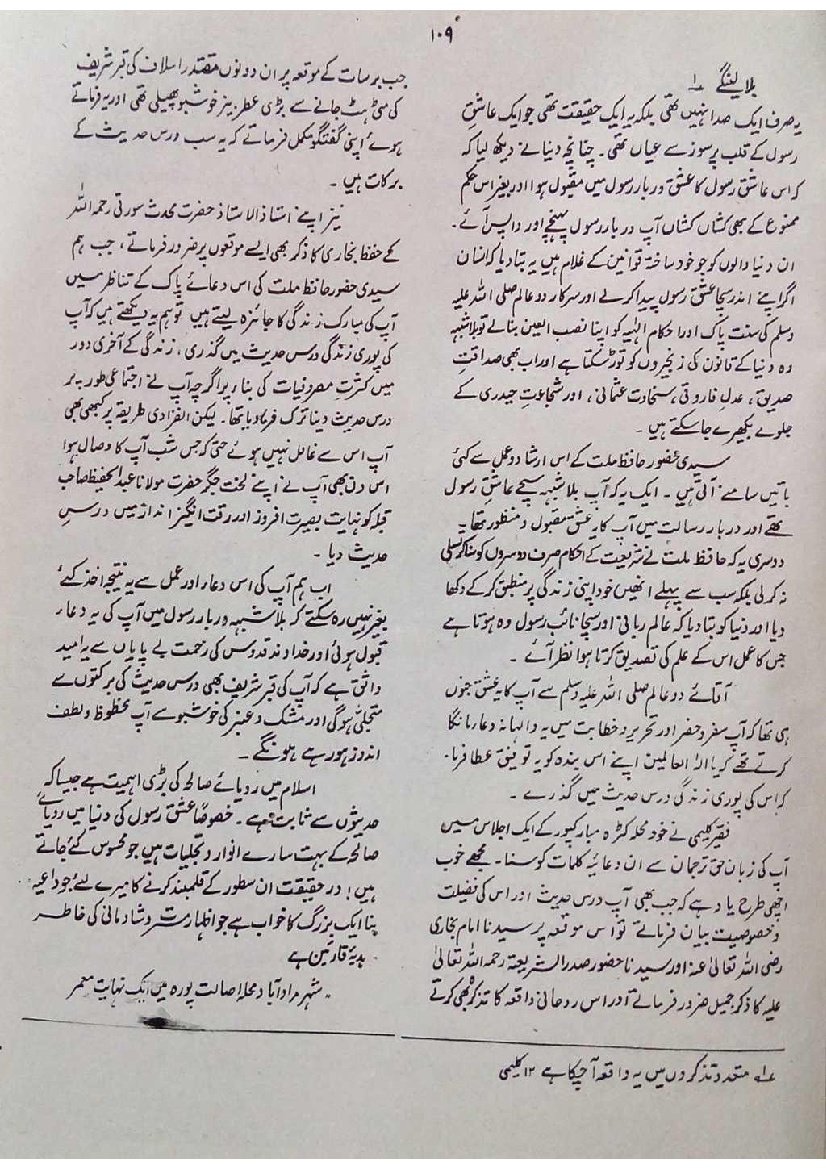 ۱۰۹
بلا لینگے ؎۱
یہ صرف ایک صدا نہیں تھی بلکہ یہ ایک حقیقت تھی جو ایک عاشقِ
رسول کے قلب پرسوز سے عیاں تھی۔ چنانچہ دنیا نے دیکھ لیا کہ
کہ اس عاشق رسول کا عشق دربار رسول میں مقبول ہوا اور بغیر اس حکم
ممنوع کے بھی کشاں کشاں آپ دربار رسول پہنچے اور واپس آئے۔
ان دنیا والوں کو جو خود ساختہ قوانین کے غلام ہیں یہ بتا دیا کہ انسان
اگر اپنے اندر سچا عشق رسول پیدا کر لے اور سرکار دو عالم صلی اللہ علیہ
وسلم کی سنت پاک اور احکام الٰہیہ کو اپنا نصب العین بنالے تو بلاشبہ
وہ دنیا کے قانون کی زنجیروں کو توڑ سکتا ہے اور اب بھی صداقتِ
صدیق، عدلِ فاروقی، سخاوت عثمانی، اور شجاعتِ حیدری کے
جلوے بکھیرے جا سکتے ہیں۔
سیدی حضور حافظ ملت کے اس ارشاد و عمل سے کئی
باتیں سامنے آتی ہیں۔ ایک یہ کہ آپ بلاشبہ سچے عاشق رسول
تھے اور دربار رسالت میں آپ کا یہ عشق مقبول و منظور تھا۔
دوسری یہ کہ حافظ ملت نے شریعت کے احکام صرف دوسروں کو سنا کر تسلی
نہ کر لی بلکہ سب سے پہلے انھیں خود اپنی زندگی پر منطبق کر کے دکھا
دیا اور دنیا کو بتا دیا کہ عالم ربانی اور سچا نائب رسول وہ ہوتا ہے
جس کا عمل اس کے علم کی تصدیق کرتا ہوا نظر آئے۔
آقائے دو عالم صلی اللہ علیہ وسلم سے آپ کا یہ عشق جنوں
ہی تھا کہ آپ سفر و حضر اور تحریر و خطابت میں یہ والہانہ دعا مانگا
کرتے تھے کہ یا الہ العالمین اپنے اس بندہ کو یہ توفیق عطا فرما۔
کہ اس کی پوری زندگی درس حدیث میں گذرے۔
فقیر کلیمی نے خود محلہ کٹرہ مبارکپور کے ایک اجلاس میں
آپ کی زبان حق ترجمان سے ان دعائیہ کلمات کو سنا۔ مجھے خوب
اچھی طرح یاد ہے کہ جب بھی آپ درس حدیث اور اس کی فضیلت
و خصوصیت بیان فرماتے تو اس موقعہ پر سیدنا امام بخاری
رضی اللہ تعالیٰ عنہ اور سیدنا حضور صدر الشریعۃ رحمہ اللہ تعالیٰ
علیہ کا ذکر جمیل ضرور فرماتے اور اس روحانی واقعہ کا تذکرہ بھی کرتے
جب برسات کے موقعہ پر ان دونوں مقتدر اسلاف کی قبر شریف
کی مٹی ہٹ جانے سے بڑی عطر بیز خوشبو پھیلی تھی اور یہ فرماتے
ہوئے اپنی گفتگو مکمل فرماتے کہ یہ سب درس حدیث کے
برکات ہیں۔
نیز اپنے استاذ الاستاذ حضرت محدث سورتی رحمہ اللہ
کے حفظ بخاری کا ذکر بھی ایسے موقعوں پر ضرور فرماتے، جب ہم
سیدی حضور حافظ ملت کی اس دعائے پاک کے تناظر میں
آپ کی مبارک زندگی کا جائزہ لیتے ہیں تو ہم یہ دیکھتے ہیں کہ آپ
کی پوری زندگی درس حدیث میں گذری، زندگی کے آخری دور
میں کثرتِ مصروفیات کی بناء پر اگرچہ آپ نے اجتماعی طور پر
درس حدیث دینا ترک فرما دیا تھا۔ لیکن انفرادی طریقہ پر کبھی بھی
آپ اس سے غافل نہیں ہوئے حتیٰ کہ جس شب آپ کا وصال ہوا
اس دن بھی آپ نے اپنے لخت جگر حضرت مولانا عبدالحفیظ صاحب
قبلہ کو نہایت بصیرت افروز اور رقت انگیز انداز میں درسِ
حدیث دیا۔
اب ہم آپ کی اس دعاء اور عمل سے یہ نتیجہ اخذ کئے
بغیر نہیں رہ سکتے کہ بلاشبہہ دربار رسول میں آپ کی یہ دعاء
قبول ہوئی اور خداوند قدوس کی رحمت بے پایاں سے یہ امید
واثق ہے کہ آپ کی قبر شریف بھی درس حدیث کی برکتوں سے
متجلّٰی ہوگی اور مشک و عنبر کی خوشبو سے آپ محظوظ و لطف
اندوز ہو رہے ہونگے۔
اسلام میں رویائے صالحہ کی بڑی اہمیت ہے جیسا کہ
حدیثوں سے ثابت ہے۔ خصوصًا عشق رسول کی دنیا میں رویائے
صالحہ کے بہت سارے انوار و تجلیات ہیں جو محسوس کئے جاتے
ہیں! در حقیقت ان سطور کے قلمبند کرنے کا میرے لئے جو داعیہ
بنا ایک بزرگ کا خواب ہے جو اظہار مسرت و شادمانی کی خاطر
ہدیۂ قارئین ہے
شہر مرادآباد محلہ اصالت پورہ میں ایک نہایت معمر
؎۱ متعدد تذکروں میں یہ واقعہ آچکا ہے ۱۲ کلیمی